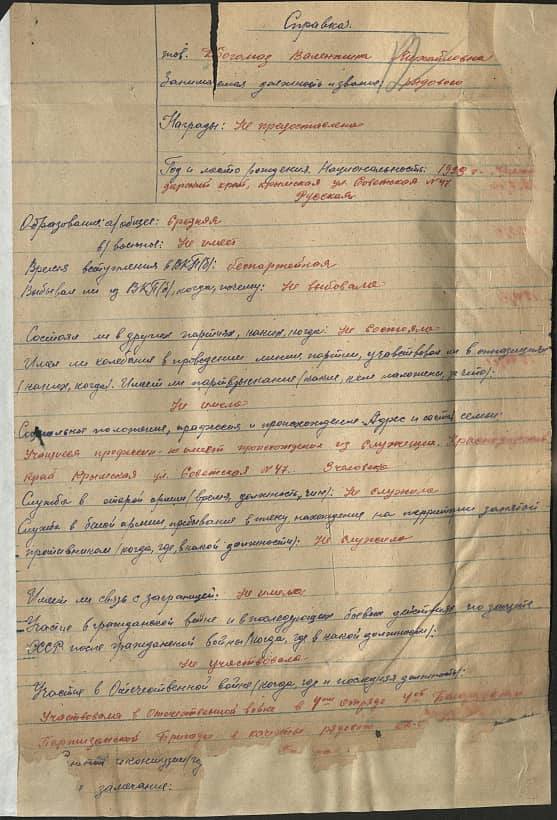 Справка.
тов. Валентина Михайловна
Занимаемая должность и звание: рядового
Награды: Не предоставлена
Год и место рождения. Национальность: 1929 г.
дарский край, Крымская ул. Советская №47
Русская
Образование: а) общее: средняя
в) военное: Не имеет
Время вступления в ВКП(б): беспартейная
Выбывал ли из ВКП(б), когда, почему: Не выбовала
Состоял ли в других партиях, каких, когда: Не состояла
Имел ли колебания в проведении линии партии, участвовал ли в оппозициях
(каких, когда). Имеет ли партвзыскание (какие, кем наложены, за что):
Не имела
Социальное положение, профессия и происхождение. Адрес и состав семьи:
Учащиеся не имеет происхождения из служащих.
край Крымская ул. Советская №47. 3 человека
Служба в старой армии (время, должность, чин): Не служила
Служба в белой армии, пребывание в плену, нахождение на территории занятой
противником (когда, где, в какой должности): Не служила
Имеет ли связь с заграницей: Не имела
Участие в гражданской войне и в последующих боевых действиях по защите
СССР после гражданской войны (когда, где в какой должности):
Не участвовала
Участие в Отечественной войне (когда, где и последняя должность):
Участвовала в Отечественной войне в отряде
Партизанской Бригады в качестве рядового
и контузии
замечание: